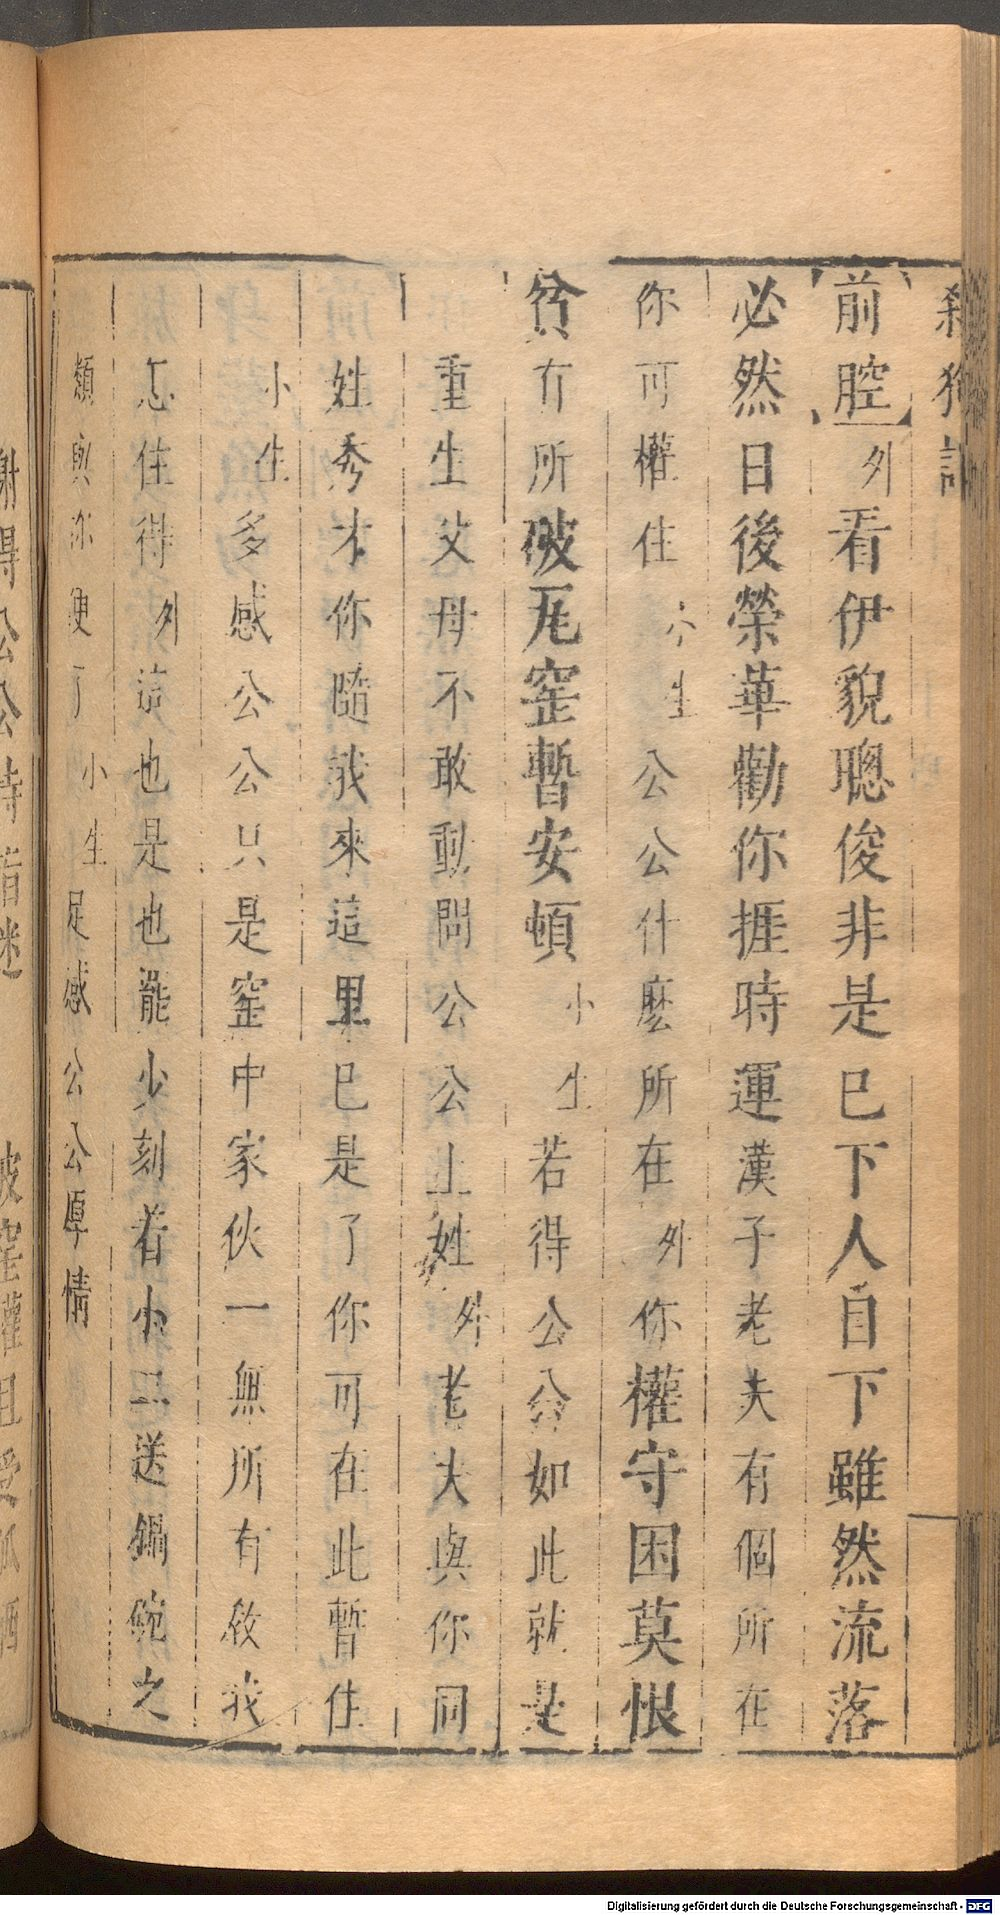 殺狗記
前腔外看伊貌聰俊非是巳下人自下雖然流落
必然日後榮華勸你捱時運漢子老夫有個所在
你可權住小生公公什麽所在外你權守困莫恨
貧有所破瓦窑暫安頓小生若得公公如此就是
重生父母不敢動問公公上姓外老夫與你同
姓秀才你隨我來這里巳是了你可在此暫住
小生多感公公只是窑中家伙一無所有敎我
怎住得外這也是也罷少刻着小二送鍋碗之
類與你便了小生足感公公厚情
謝得公公特指迷　破窑權且受孤恓
Digitalisierung gefördert durch die Deutsche Forschungsgemeinschaft - DFG